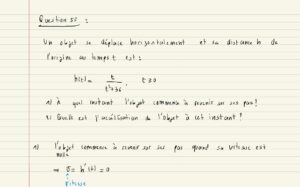 Question 55 :
Un objet se déplace horizontalement et sa distance h de
l'origine au temps t est :
h(t) = t / t²+36 , t ≥ 0
1) à quel instant l'objet commence à revenir sur ses pas?
2) Quelle est l'accélération de l'objet à cet instant?
1) l'objet commence à revenir sur ses pas quand sa vitesse est
nulle
⇒ v = h'(t) = 0
vitesse